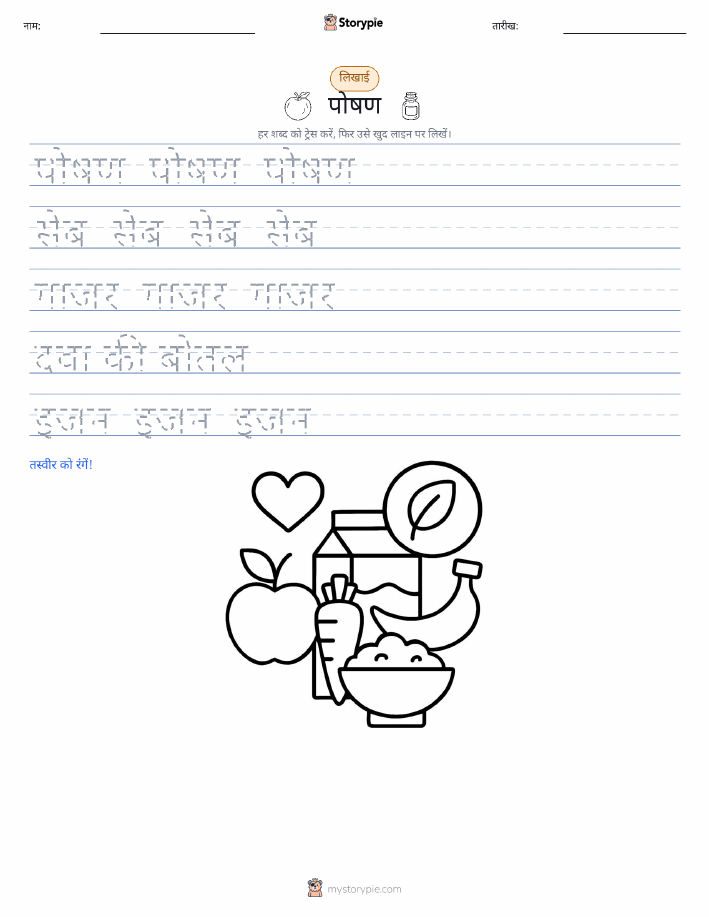 नाम:
Storypie
तारीख:
लिखाई
पोषण
हर शब्द को ट्रेस करें, फिर उसे खुद लाइन पर लिखें।
पोषण पोषण पोषण
सेब सेब सेब सेब
गाजर गाजर गाजर
दवा की बोतल
इंजन इंजन इंजन
तस्वीर को रंगें!
mystorypie.com